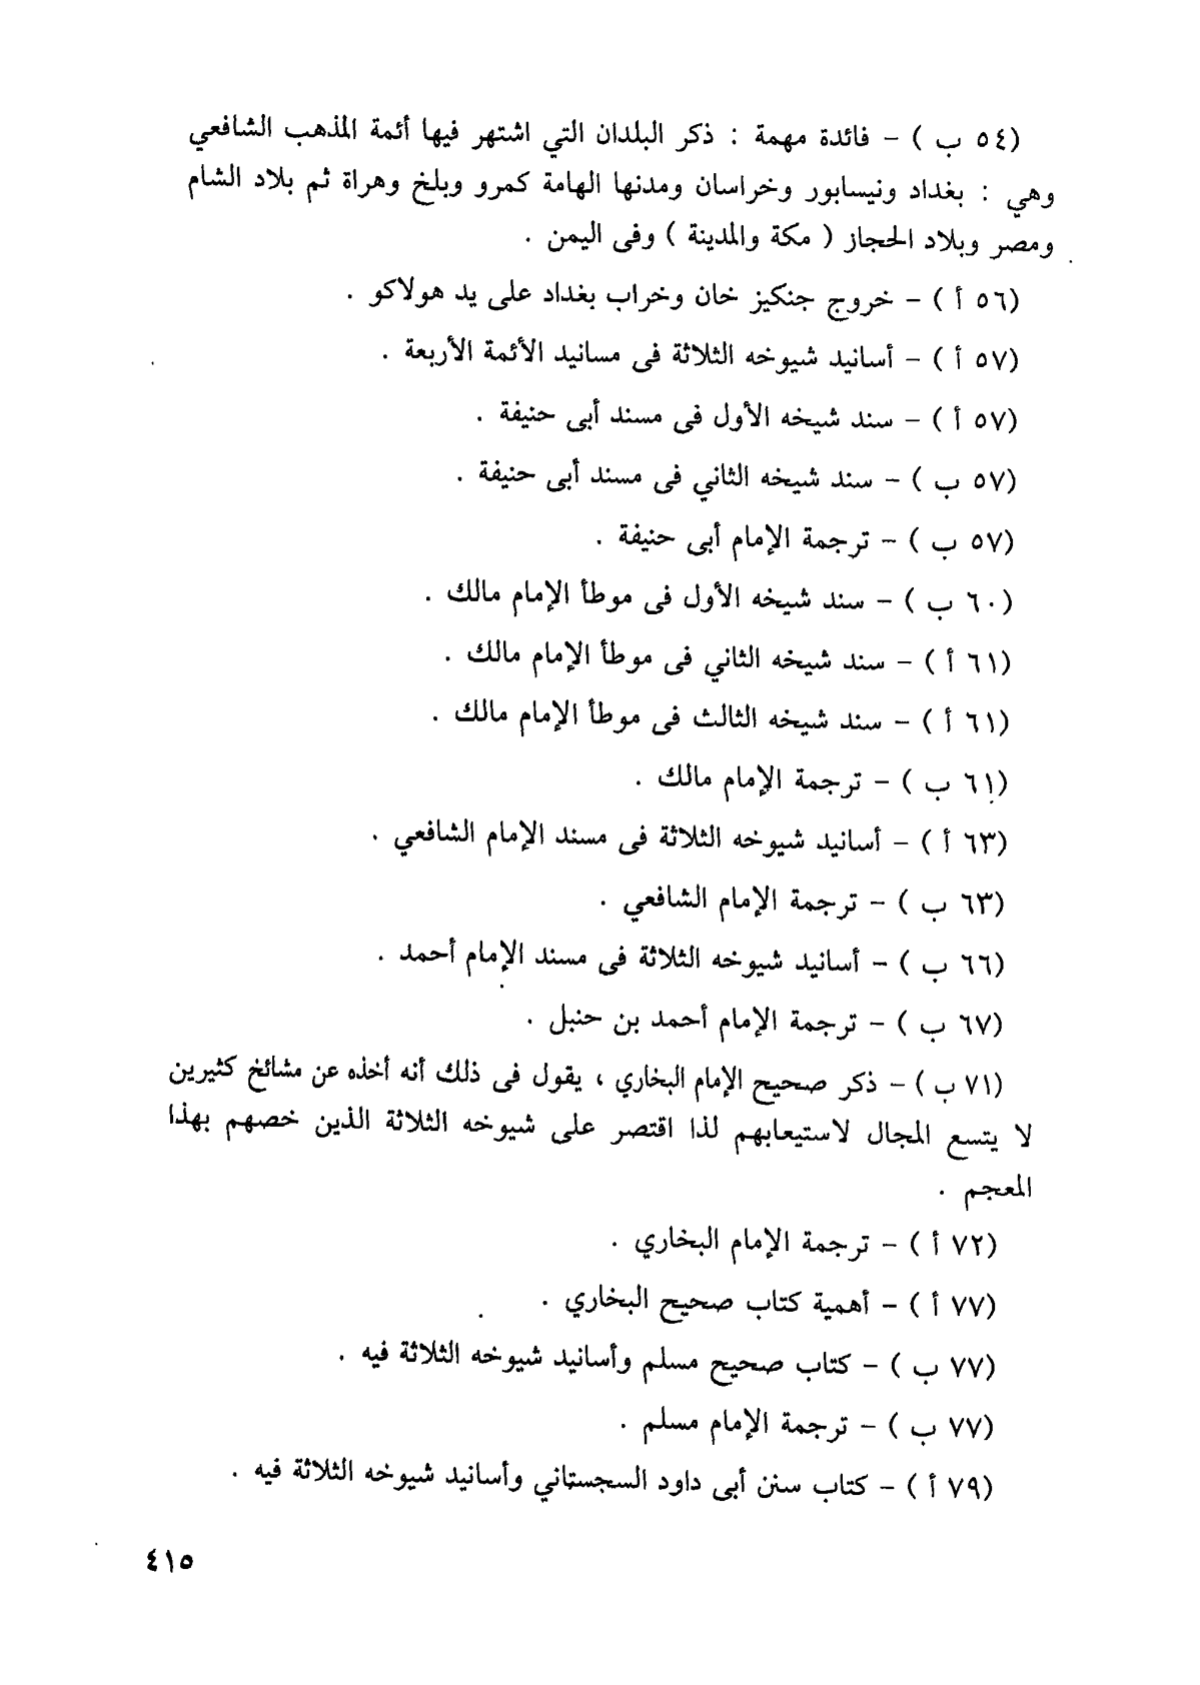 (٥٤ ب ) – فائدة مهمة : ذكر البلدان التي اشتهر فيها أئمة المذهب الشافعي
وهي : بغداد ونيسابور وخراسان ومدنها الهامة كمرو وبلخ وهراة ثم بلاد الشام
ومصر وبلاد الحجاز ( مكة والمدينة ) وفى اليمن .
(٥٦ أ ) – خروج جنكيز خان وخراب بغداد على يد هولاكو .
(٥٧ أ ) – أسانيد شيوخه الثلاثة فى مسانيد الأئمة الأربعة .
(٥٧ أ ) – سند شيخه الأول فى مسند أبى حنيفة .
(٥٧ ب ) – سند شيخه الثاني فى مسند أبى حنيفة .
(٥٧ ب ) – ترجمة الإمام أبى حنيفة .
(٦٠ ب ) – سند شيخه الأول فى موطأ الإمام مالك .
(٦١ أ ) – سند شيخه الثاني فى موطأ الإمام مالك .
(٦١ أ ) – سند شيخه الثالث فى موطأ الإمام مالك .
(٦١ ب ) – ترجمة الإمام مالك .
(٦٣ أ ) – أسانيد شيوخه الثلاثة فى مسند الإمام الشافعي .
(٦٣ ب ) – ترجمة الإمام الشافعي .
(٦٦ ب ) – أسانيد شيوخه الثلاثة فى مسند الإمام أحمد .
(٦٧ ب ) – ترجمة الإمام أحمد بن حنبل .
(٧١ ب ) – ذكر صحيح الإمام البخاري ، يقول فى ذلك أنه أخذه عن مشائخ كثيرين
لا يتسع المجال لاستيعابهم لذا اقتصر على شيوخه الثلاثة الذين خصهم بهذا
المعجم .
(٧٢ أ ) – ترجمة الإمام البخاري .
(٧٧ أ ) – أهمية كتاب صحيح البخاري .
(٧٧ ب ) – كتاب صحيح مسلم وأسانيد شيوخه الثلاثة فيه .
(٧٧ ب ) – ترجمة الإمام مسلم .
(٧٩ أ ) – كتاب سنن أبى داود السجستاني وأسانيد شيوخه الثلاثة فيه .
٤١٥